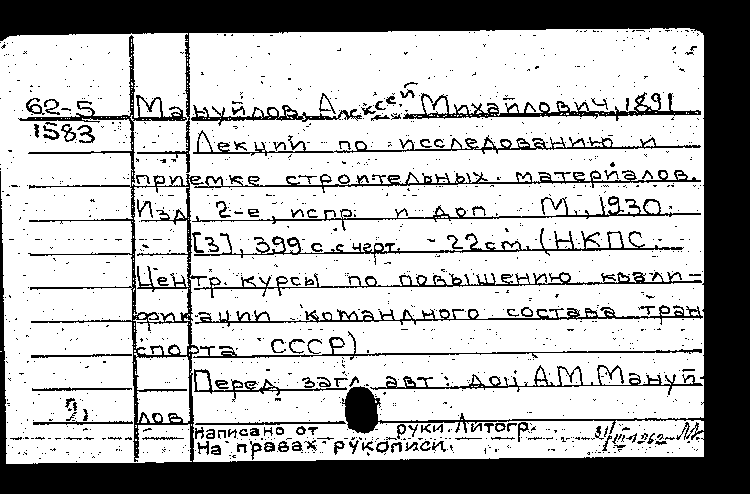 62-5 Мануйлов, Алексей Михайлович, 1891
1583 Лекции по исследованию и
приемке строительных материалов.
Изд. 2-е, испр. и доп. М., 1930.
[3], 399 с. с черт. 22 cm. (НКПС.
Центр. курсы по повышению квали=
фикации командного состава тран
спорта СССР).
Перед загл. авт: доц. А.М. Мануй-
лов
написано от руки. Литогр.
На правах рукописи.
31/III-1962